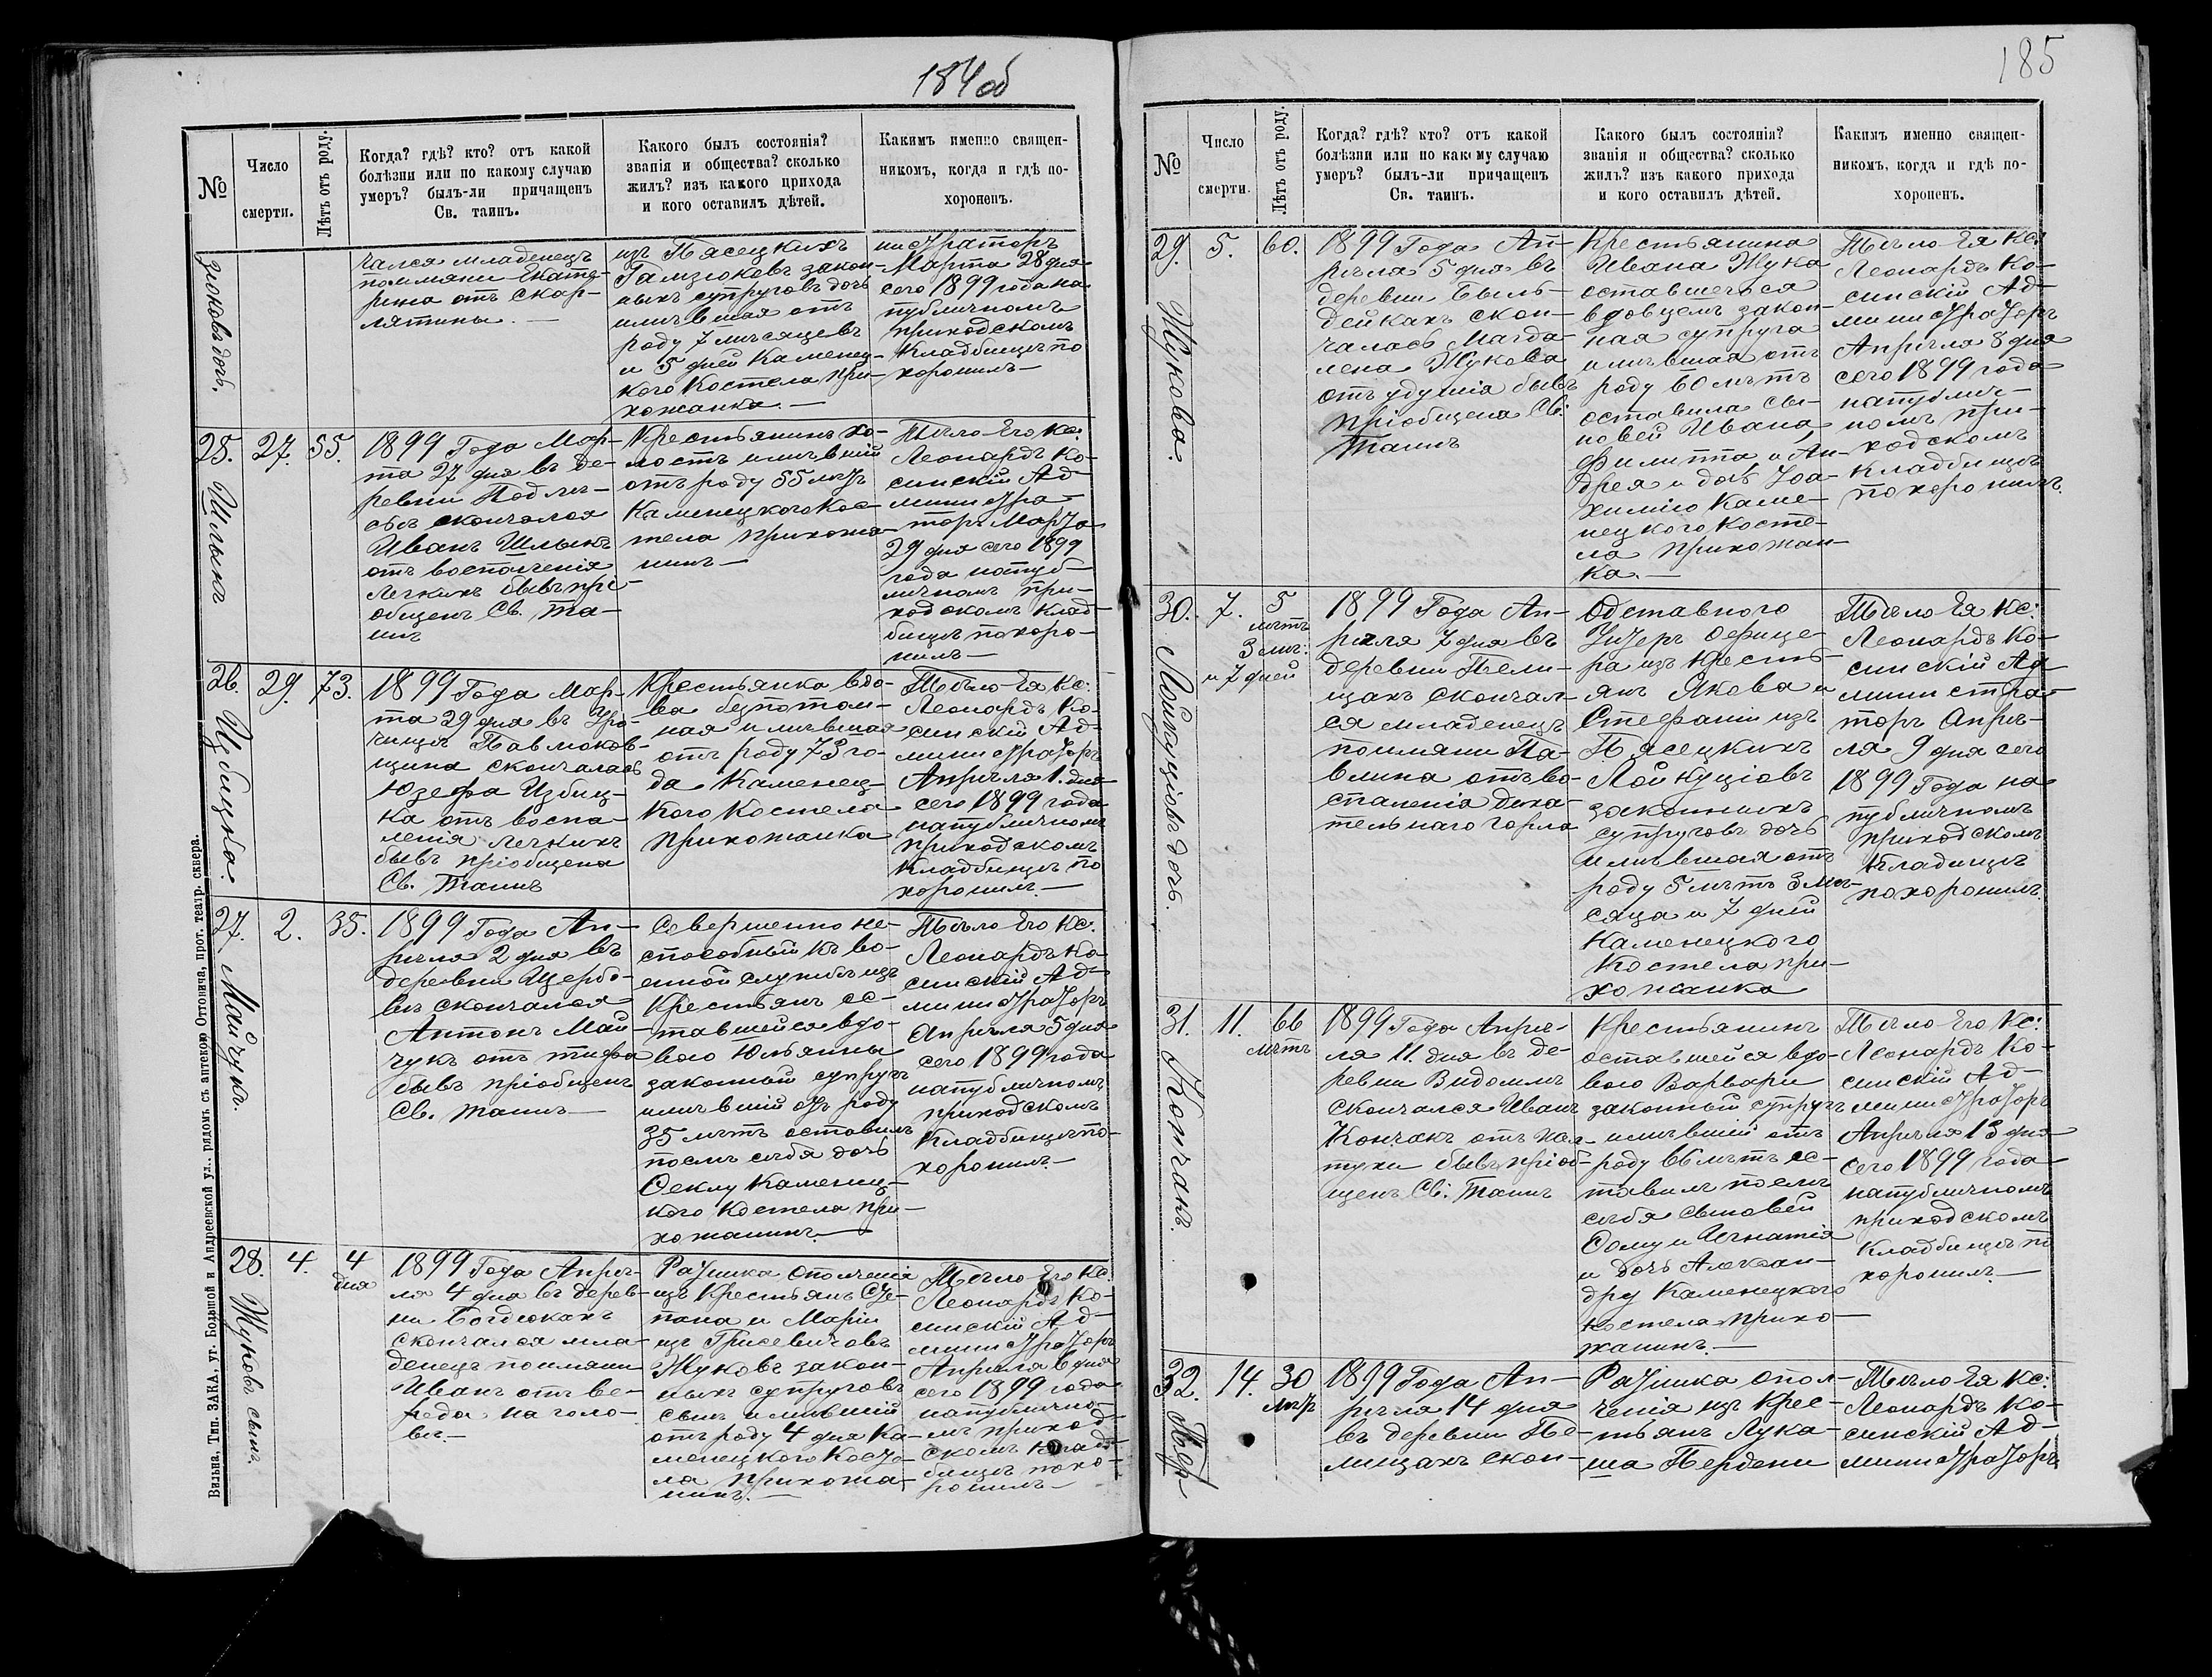 184 об
№
Число
смерти.
Лѣтъ отъ роду.
Когда? гдѣ? кто? отъ какой
болѣзни или по какому случаю
умеръ? былъ-ли причащенъ
Св. таинъ.
Какого былъ состоянія?
званія и общества? сколько
жилъ? изъ какого прихода
и кого оставилъ дѣтей.
Какимъ именно священ-
никомъ, когда и гдѣ по-
хороненъ.
зюковъ дочь.
чался младенецъ
по имяни Екате-
рина отъ скар-
лятины. —
изъ Пясецкихъ
Гамзюковъ закон-
ныхъ супруговъ дочь
имѣвшая отъ
роду 7 мѣсяцевъ
и 5 дней Каменец-
кого Костела при-
хожанка. —
нистраторъ
Марта 28 дня
сего 1899 года на
публичномъ
приходскомъ
Кладбищѣ по
хоронилъ —
25.
Шлыкъ
27.
55.
1899 Года Мар-
та 27 дня въ де-
ревни Подлѣ-
сьѣ скончался
Иванъ Шлыкъ
отъ воспаленія
легкихъ бывъ прі-
общенъ Св. Та-
инъ
Крестьянинъ хо-
лостъ имѣвшій
отъ роду 55 лѣтъ
Каменецкого Кос-
тела прихожа-
нинъ —
Тѣло Его Кс:
Леонардъ Ко-
синскій Ад-
министра-
торъ Марта
29 дня сего 1899
года на пуб-
личномъ при-
ходскомъ Клад-
бищѣ похоро-
нилъ —
26.
Избицка.
29.
73.
1899 Года Мар-
та 29 дня въ Уро-
чищѣ Павлюков-
щина скончалась
Юзефа Избиц-
ка отъ воспа-
ленія легкихъ
бывъ пріобщена
Св. Таинъ
Крестьянка вдо-
ва безпотом-
ная имѣвшая
отъ роду 73 го-
да Каменец-
кого Костела
прихожанка
Тѣло Ея Кс:
Леонардъ Ко-
синскій Ад-
министраторъ
Апрѣля 1. дня
сего 1899 года
на публичномъ
приходскомъ
Кладбищѣ по
хоронилъ —
27.
Майчукъ.
2.
35.
1899 Года Ап-
рѣля 2 дня въ
деревни Щербо-
вѣ скончался
Антонъ Май-
чукъ отъ тифа
бывъ пріобщенъ
Св. таинъ —
Совершенно не-
способный къ во-
енной службѣ изъ
Крестьянъ ос-
тавшейся вдо-
вою Юльянны
законный супругъ
имѣвшій отъ роду
35 лѣтъ оставилъ
послѣ себя дочь
Феклу Каменец-
кого Костела при-
хожанинъ —
Тѣло Его Кс:
Леонардъ Ко-
синскій Ад-
министраторъ
Апрѣля 5 дня
сего 1899 года
на публичномъ
приходскомъ
Кладбищѣ по-
хоронилъ —
28.
Жуковъ сынъ.
4.
4
дня
1899 Года Апрѣ-
ля 4 дня въ дерев-
ни Богдюкахъ
скончался мла-
денецъ по имяни
Иванъ отъ ве-
реда на голо-
вѣ. —
Ратника Ополченія
изъ Крестьянъ Сте-
пана и Маріи
изъ Грисевичовъ
Жуковъ закон-
ныхъ супруговъ
сынъ имѣвшій
отъ роду 4 дня Ка-
менецкого Косте-
ла прихожа-
нинъ. —
Тѣло Его Кс.
Леонардъ Ко-
синскій Ад-
министраторъ
Апрѣля 6 дня
сего 1899 года
на публично-
мъ приход-
скомъ Клад-
бищѣ похо-
ронилъ —
Вильна. Тип. ЗАКА, уг. Большой и Андреевской ул., рядомъ съ аптекою Оттовича, прот. театр. сквера.
185
№
Число
смерти.
Лѣтъ отъ роду.
Когда? гдѣ? кто? отъ какой
болѣзни или по какому случаю
умеръ? былъ-ли причащенъ
Св. таинъ.
Какого былъ состоянія?
званія и общества? сколько
жилъ? изъ какого прихода
и кого оставилъ дѣтей.
Какимъ именно священ-
никомъ, когда и гдѣ по-
хороненъ.
29.
Жукова.
5.
60.
1899 Года Ап-
рѣля 5 дня въ
деревни Быль-
дейкахъ скон-
чалась Магда-
лена Жукова
отъ удушія бывъ
пріобщена Св:
Таинъ
Крестьянина
Ивана Жука
оставшегося
вдовцемъ закон-
ная супруга
имѣвшая отъ
роду 60 лѣтъ
оставила сы-
новей Ивана,
Филиппа и Ан-
дрея и дочь Іоа-
химію Каме-
нецкого Косте-
ла прихожан-
ка. —
Тѣло Ея Кс:
Леонардъ Ко-
синскій Ад-
министраторъ
Апрѣля 8 дня
сего 1899 года
на публич-
номъ при-
ходскомъ
Кладбищѣ
похоронилъ.
30.
Лойкуціовъ дочь.
7.
5
лѣтъ
3 мѣс:
и 7 дней
1899 Года Ап-
рѣля 7 дня въ
деревни Пели-
щахъ скончал-
ся младенецъ
по имяни Па-
влина отъ во-
спаленія дыха-
тельнаго горла
Отставного
Унтеръ Офице-
ра изъ Кресть-
янъ Якова и
Стефаніи изъ
Пясецкихъ
Лойкуціовъ
законныхъ
супруговъ дочь
имѣвшая отъ
роду 5 лѣтъ 3 мѣ-
сяца и 7 дней
Каменецкого
Костела при-
хожанка
Тѣло Ея Кс:
Леонардъ Ко-
синскій Ад
министра-
торъ Апрѣ-
ля 9 дня сего
1899 Года на
публичномъ
приходскомъ
Кладбищѣ
похоронилъ.
31.
Кончакъ.
11.
66
лѣтъ
1899 Года Апрѣ-
ля 11. дня въ де-
ревни Видомлѣ
скончался Иванъ
Кончакъ отъ кол-
туна бывъ пріоб-
щенъ Св: Таинъ
Крестьянинъ
оставшейся вдо-
вою Варвари
законный супругъ
имѣвшій отъ
роду 66 лѣтъ ос-
тавилъ послѣ
себя сыновей
Фому и Игнатія
и дочь Алексан-
дру Каменецкого
Костела прихо-
жанинъ. —
Тѣло Его Кс:
Леонардъ Ко-
синскій Ад-
министраторъ
Апрѣля 13 дня
сего 1899 года
на публичномъ
приходскомъ
Кладбищѣ по
хоронилъ. —
32.
Пер
14.
30
лѣтъ
1899 Года Ап-
рѣля 14 дня
въ деревни Пе-
лищахъ скон-
Ратника опол-
ченія изъ Крес-
тьянъ Лука-
ша Пердени
Тѣло Ея Кс:
Леонардъ Ко-
синскій Ад-
министраторъ